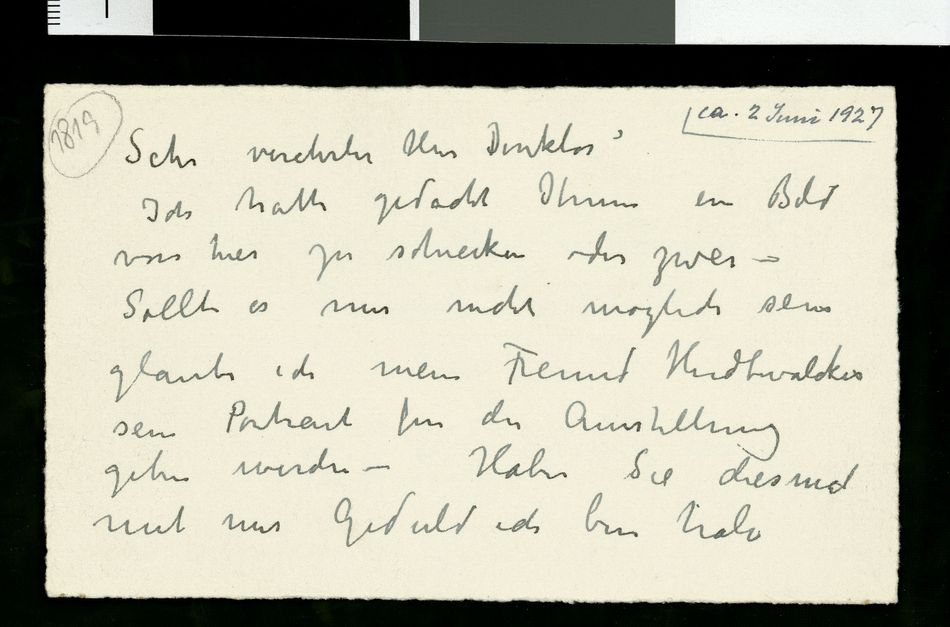 1819
[ca. 2 Juni 1927
Sehr verehrter Herr Direktor
Ich hatte gedacht Ihnen ein Bild
von hier zu schicken oder zwei –
Sollte es mir nicht möglich sein
glaube ich mein Freund Hudtwalcker
sein Portrait für die Ausstellung
geben würde – Haben Sie diesmal
mit mir Geduld ich bin halb